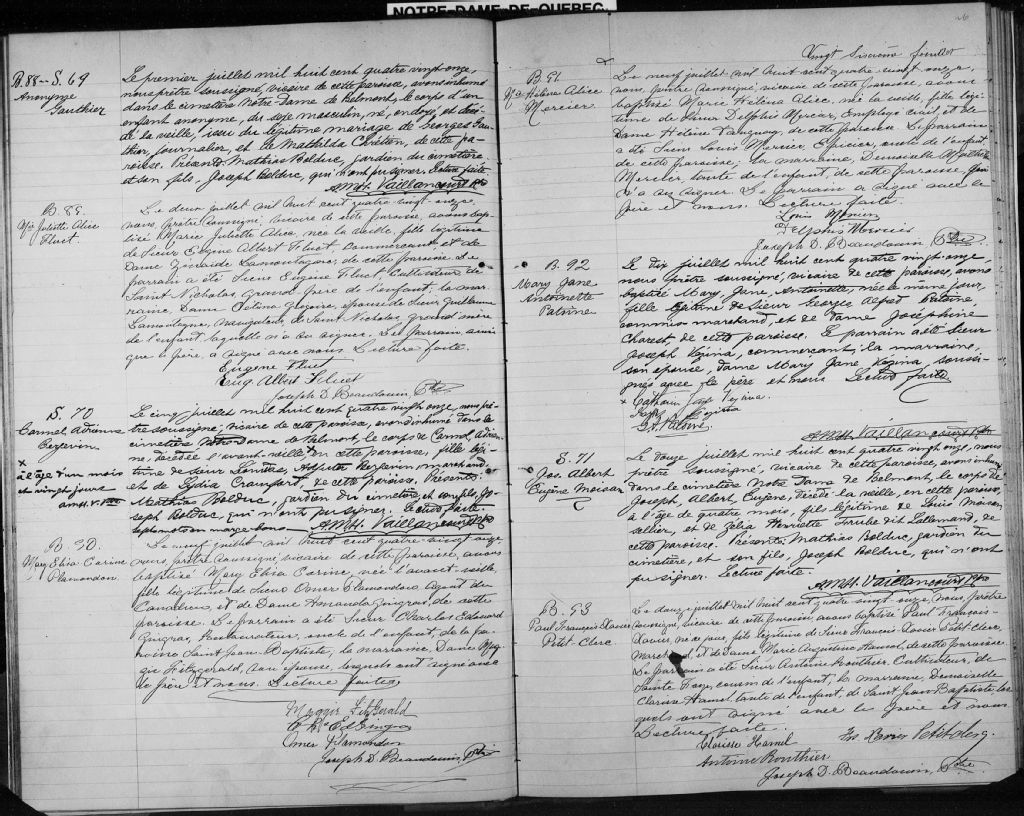 NOTRE-DAME-DE-QUEBEC.
B.88 – S. 69
Anonyme
Gauthier
Le premier juillet mil huit cent quatre vingt onze,
nous prêtre soussigné, vicaire de cette paroisse, avons inhumé
dans le cimetière Notre-Dame de Belmont, le corps d'un
enfant anonyme, du sexe masculin, né, ondoyé et décé-
dé la veille, issu du légitime mariage de Georges Gau-
thier, journalier, et de Mathilda Chrétien, de cette pa-
roisse. Présents Mathias Bolduc, gardien du cimetière
et son fils, Joseph Bolduc, qui n'ont pu signer. Lecture faite
A M H. Vaillancourt Ptre
B. 89.
Mie Juliette Alice
Fluet.
Le deux juillet mil huit cent quatre vingt onze,
nous, prêtre soussigné, vicaire de cette paroisse, avons bap-
tisé Marie Juliette Alice, née la veille, fille légitime
de Sieur Eugène Albert Fluet commerçant et de
Dame Zénaïde Lamontagne, de cette paroisse. Le
parrain a été Sieur Eugène Fluet Cultivateur de
Saint Nicholas, grand père de l'enfant, la mar-
raine, Dame Grégoire, épouse de Sieur Guillaume
Lamontagne, navigateur, de Saint Nicholas, grand mère
de l'enfant laquelle n'a su signer. Le parrain ainsi
que le père, a signé avec nous. Lecture faite.
Eugène Fluet
Eug. Albert Fluet
Joseph D. Beaudouin, Ptre
S. 70
Carmel, Adrienne
Bergevin
x
à l'âge d'un mois
et vingt jours
AMH. V. Ptre
Le cinq juillet mil huit cent quatre vingt onze, nous prê-
tre soussigné, vicaire de cette paroisse, avons inhumé dans le
cimetière Notre Dame de Belmont, le corps de Carmel, Adrien-
ne, décédée l'avant-veille x en cette paroisse, fille légi-
time de Sieur Bergevin, marchand,
et de Lydia Crawford, de cette paroisse. Présents
Mathias Bolduc, gardien du cimetière, et son fils, Jo-
seph Bolduc, qui n'ont pu signer. Lecture faite.
sept mots en marge bons A M H. Vaillancourt Ptre
B. 90.
Mary Elisa Corine
Plamondon.
Le neuf juillet mil huit cent quatre vingt onze
nous, prêtre soussigné, vicaire de cette paroisse, avons
baptisé Mary Elisa Corine née l'avant-veille,
fille légitime de Sieur Omer Plamondon Agent du
et de Dame Amanda Gingras, de cette
paroisse. Le parrain a été Sieur Charles Edouard
Gingras, Restaurateur, oncle de l'enfant, de la pa-
roisse Saint Jean-Baptiste, la marraine, Dame Mag-
gie Fitzgerald, son épouse, lesquels ont signé avec
le père et nous. Lecture faite.
Maggie FitzGerald
Ed Gingras
Omer Plamondon
Joseph D. Beaudouin, Ptre
26
Vingt sixième feuillet
B. 91.
Mie Hélèna Alice
Mercier.
Le neuf juillet mil huit cent quatre vingt onze,
nous, prêtre soussigné, vicaire de cette paroisse, avons
baptisé Marie Hélèna Alice, née la veille, fille légi-
time de Sieur Delphis Mercier, Employé civil, et de
Dame Hélène Tanguay, de cette paroisse. Le parrain
a été Sieur Louis Mercier Epicier, oncle de l'enfant,
de cette paroisse; la marraine, Demoiselle
Mercier, tante de l'enfant, de cette paroisse, qui
n'a su signer. Le parrain a signé avec le
père et nous. Lecture faite.
Louis Mercier
Delphis Mercier
Joseph D. Beaudouin, Ptre.
B. 92
Mary Jane
Antoinette
Patrine
Le dix juillet mil huit cent quatre vingt-onze,
nous prêtre soussigné, vicaire de cette paroisse, avons
baptisé Mary, Jane, Antoinette, née le même jour,
fille légitime de Sieur Georges Patrine,
commis marchand, et de Dame Joséphine
Charest, de cette paroisse. Le parrain a été Sieur
Joseph Vézina, commerçant; la marraine,
son épouse, Dame Mary Jane Vézina, soussi-
gnés avec le père et nous. Lecture faite
Jane Vezina
Vezina
A M H. Vaillancourt Ptre
S. 71
Jos. Albert
Eugène Moisan
Le douze juillet mil huit cent quatre vingt onze, nous
prêtre soussigné, vicaire de cette paroisse, avons inhumé
dans le cimetière Notre Dame de Belmont, le corps de
Joseph, Albert, Eugène, décédé la veille, en cette paroisse,
à l'âge de quatre mois, fils légitime de Louis Moisan
sellier, et de Zélia Henriette dit Lallemand, de
cette paroisse. Présents Mathias Bolduc, gardien du
cimetière, et son fils, Joseph Bolduc, qui n'ont
pu signer. Lecture faite.
A M H. Vaillancourt Ptre
B. 93
Paul François Xavier
Petit Clerc
Le douze juillet mil huit cent quatre vingt onze, nous, prêtre
soussigné, vicaire de cette paroisse avons baptisé Paul François-
Xavier, né ce jour, fils légitime de Sieur François-Xavier Petit Clerc,
Marchand, et de Dame Marie Augustine Hamel, de cette paroisse.
Le parrain a été Sieur Antoine Routhier Cultivateur, de
Sainte Foye, cousin de l'enfant, la marraine, Demoiselle
Clarisse Hamel, tante de l'enfant, de Saint Jean Baptiste, les
quels ont signé avec le père et nous
Lecture faite.
Clarisse Hamel Frs Xavier Petitclerc.
Antoine Routhier
Joseph D. Beaudouin, Ptre.